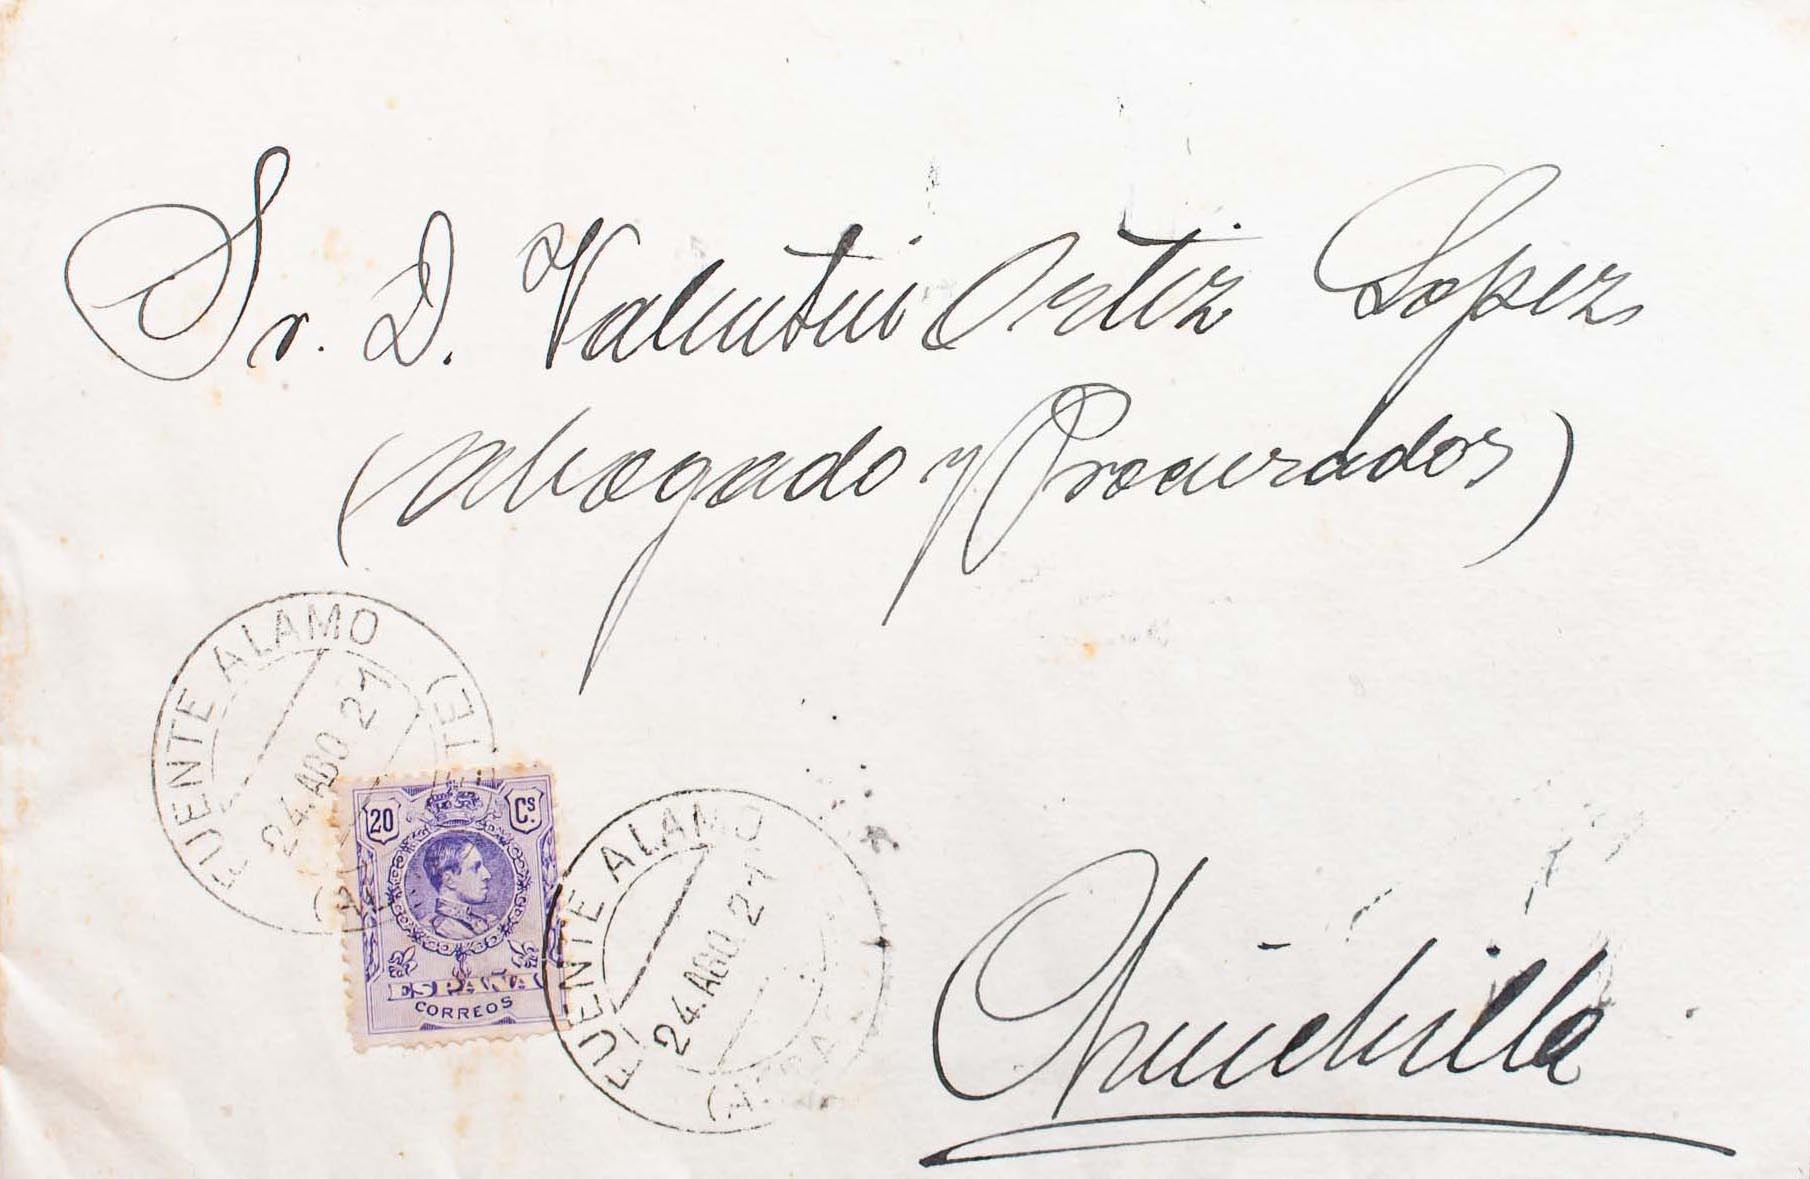 Sr. D. Valentin Ortiz Lopez
(Abogado y Procurador)
FUENTE ALAMO
24.AGO 21
20 Cs.
ESPAÑA
CORREOS
FUENTE ALAMO
24.AGO.21
Chinchilla